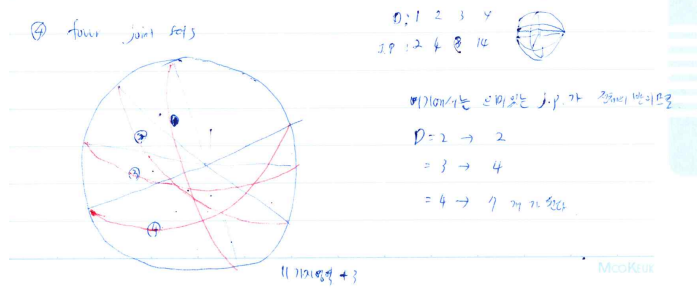 ④ four joint sets
D: 1 2 3 4
J.P : 2 4 8 14
여기에서는 의미있는 j.p.가 전체의 반이므로
D=2 → 2
=3 → 4
=4 → 7 개가 된다
11가지영역 + 3
MOOKEUK